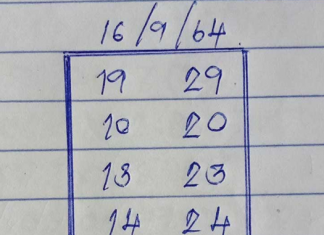 16/9/64
19 29
10 20
13 23
14 24